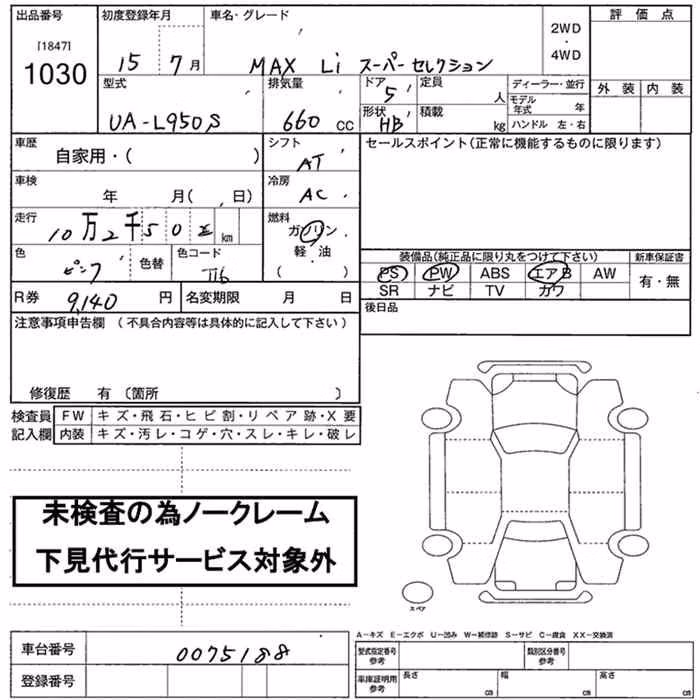 出品番号 初度登録年月 車名・グレード 評価点
[1847] 1030 15 7月 MAX Li スーパーセレクション 2WD・4WD
外装 内装
型式 排気量 ドア 5 定員 人 ディーラー・並行
UA-L950S 660 CC 形状 HB 積載 kg モデル年式 年
ハンドル 左・右
車歴 自家用・( ) シフト AT セールスポイント(正常に機能するものに限ります)
車検 年 月( 日) 冷房 AC
走行 10万2千50 km 燃料 ガソリン
軽油
( )
色 ピンク 色替 色コード 装備品(純正品に限り丸をつけて下さい) 新車保証書
PS PW ABS エアB AW 有・無
SR ナビ TV カワ
R券 9,140 円 名変期限 月 日 後日品
注意事項申告欄 (不具合内容等は具体的に記入して下さい)
修復歴 有 (箇所 )
検査員 FW キズ・飛石・ヒビ割・リペア跡・X要
記入欄 内装 キズ・汚レ・コゲ・穴・スレ・キレ・破レ
未検査の為ノークレーム
下見代行サービス対象外
スペア
A-キズ E-エクボ U-凹み W-補修跡 S-サビ C-腐食 XX-交換済
車台番号 0075188 型式指定番号 参考 類別区分番号 参考
登録番号 車庫証明用 参考 長さ cm 幅 cm 高さ cm